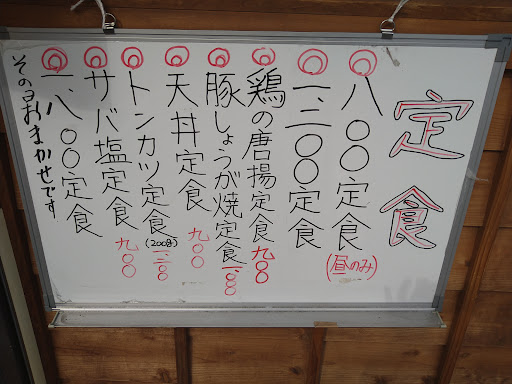 定食
◎八〇〇定食(昼のみ)
◎一、二〇〇定食
◎鶏の唐揚定食九〇〇
◎豚しょうが焼定食一、〇〇〇
◎天丼定食九〇〇
◎トンカツ定食(200g)一、二〇〇
◎サバ塩定食九〇〇
◎一、八〇〇定食
その日おまかせです